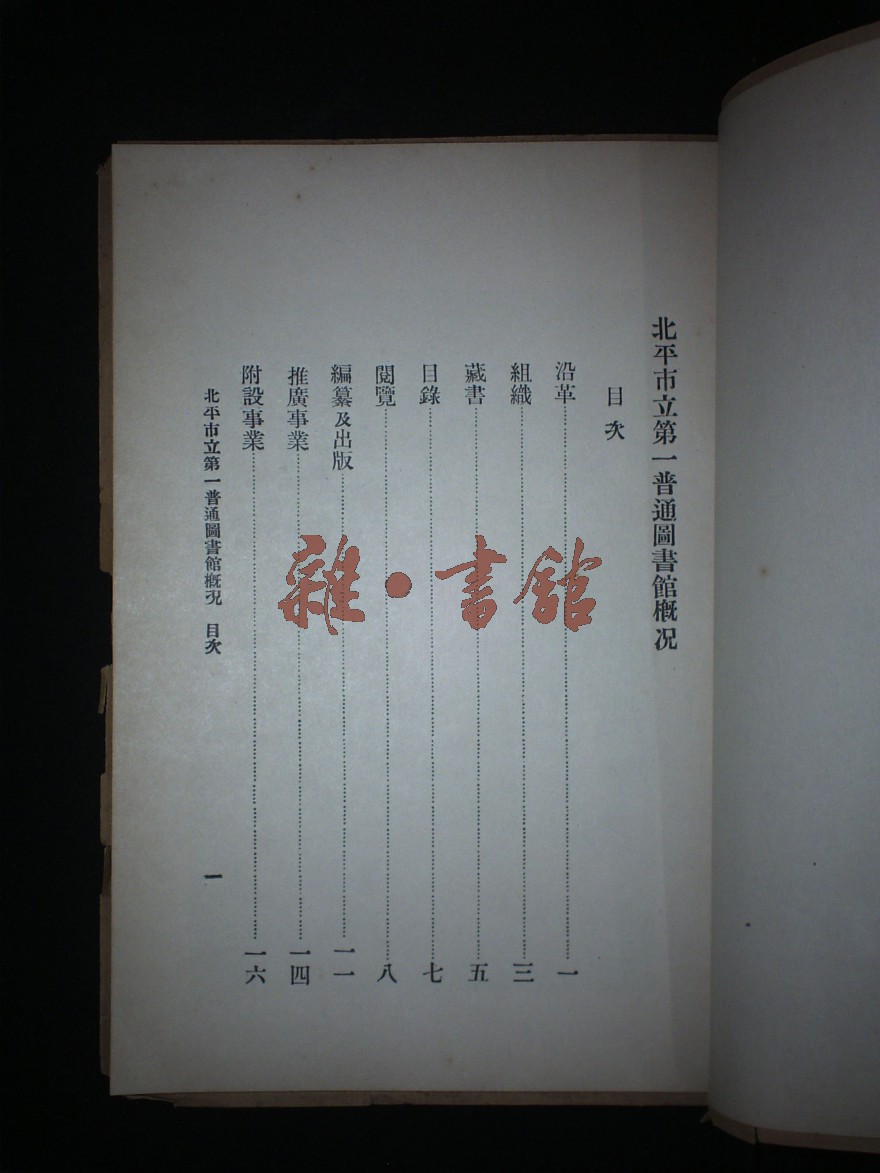 北平市立第一普通圖書館槪況
目次
沿革……一
組織……三
藏書……五
目錄……七
閱覽……八
編纂及出版……一一
推廣事業……一四
附設事業……一六
北平市立第一普通圖書館槪況 目次
一
雜·書館